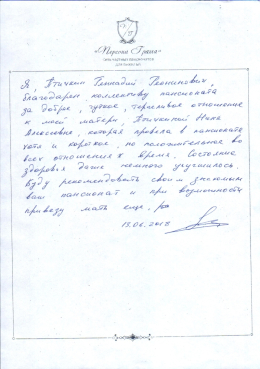 «Перспектива»
Я, Птичкин Геннадий Леонидович,
благодарен коллективу пансионата
за доброе, чуткое, терпеливое отношение
к моей матери, Птичкиной Нине
Алексеевне, которая провела в пансионате
хотя и короткое, но положительное во
всех отношениях время. Состояние
здоровья даже немного улучшилось
Буду рекомендовать своим знакомым
ваш пансионат и при возможности
привезу мать еще.
13.06.2018